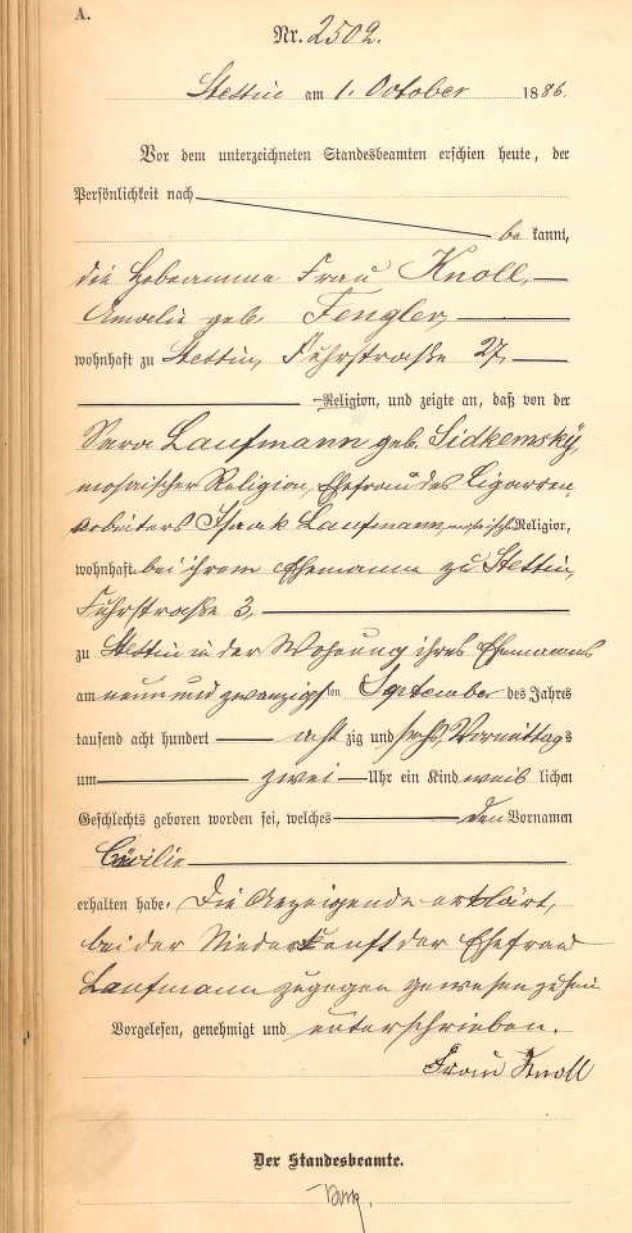 A.
Nr. 2502.
Stettin am 1. October 1886.
Vor dem unterzeichneten Standesbeamten erschien heute, der
Persönlichkeit nach
be kannt,
die Hebeamme Frau Knoll,
Amalie geb. Fengler,
wohnhaft zu Stettin, Fuhrstraße 27,
Religion, und zeigte an, daß von der
Sara Laufmann geb. Sidkemsky,
mosaischer Religion, Ehefrau des Cigarren-
arbeiters Isaak Laufmann, mosaischer Religion,
wohnhaft bei ihrem Ehemanne zu Stettin,
Fuhrstraße 3,
zu Stettin in der Wohnung ihres Ehemanns
am neun und zwanzigsten September des Jahres
tausend acht hundert acht zig und sechs, Vormittags
um zwei Uhr ein Kind weib lichen
Geschlechts geboren worden sei, welches den Vornamen
Cäcilie
erhalten habe. Die Anzeigende erklärt,
bei der Niederkunft der Ehefrau
Laufmann zugegen gewesen zu sein
Vorgelesen, genehmigt und unterschrieben.
Frau Knoll
Der Standesbeamte.